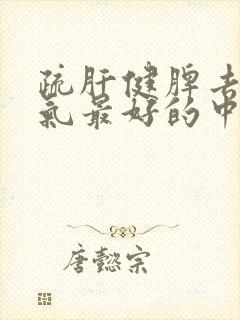 疏肝健脾去
氣最好的中
唐懿宗